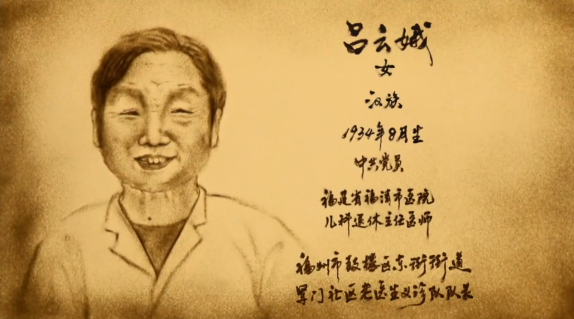 吕云娥
女
汉族
1934年8月生
中共党员
福建省福清市医院
儿科退休主任医师
福州市鼓楼区东街街道
军门社区老医生义诊队队长